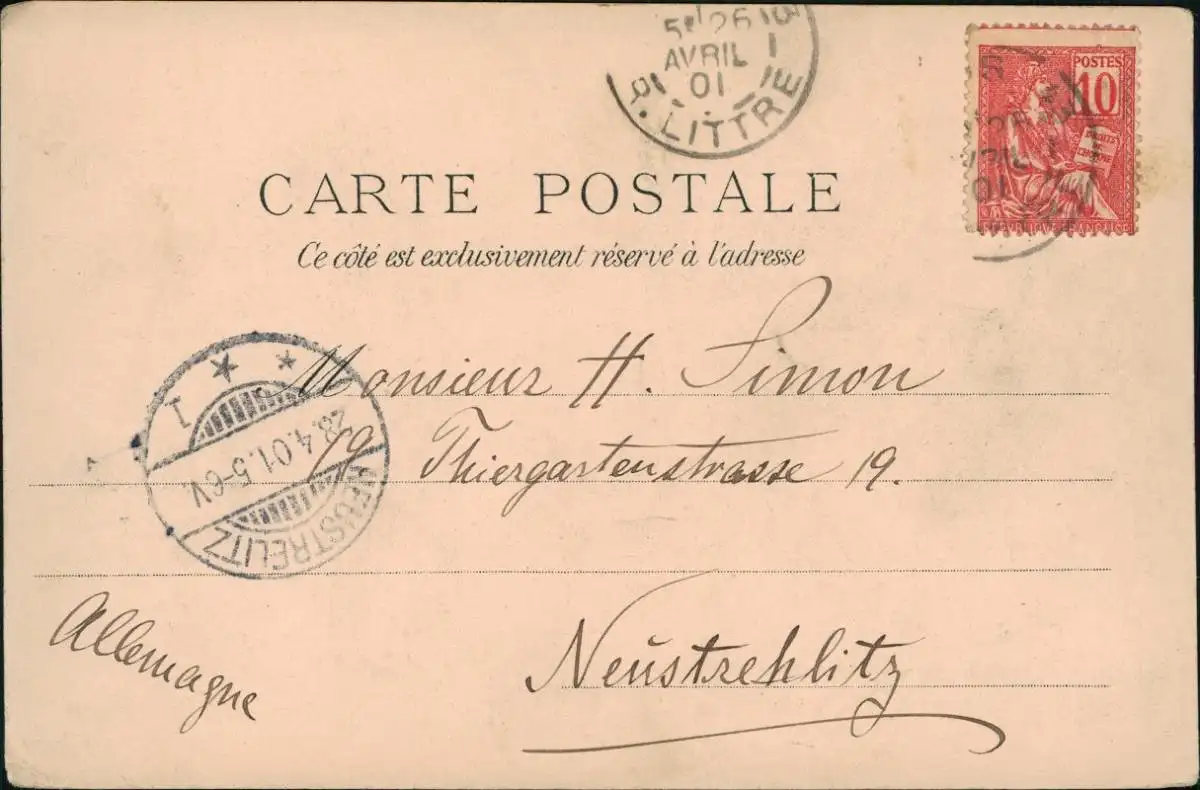 5E 26
AVRIL
01
R. LITTRE
POSTES
10
DROITS
DE
L'HOMME
RÉPUBLIQUE FRANÇAISE
CARTE POSTALE
Ce côté est exclusivement réservé à l'adresse
Monsieur H. Simon
19 Thiergartenstrasse 19.
Neustrehlitz
Allemagne
1
28.4.01.5-6V.
NEUSTRELITZ